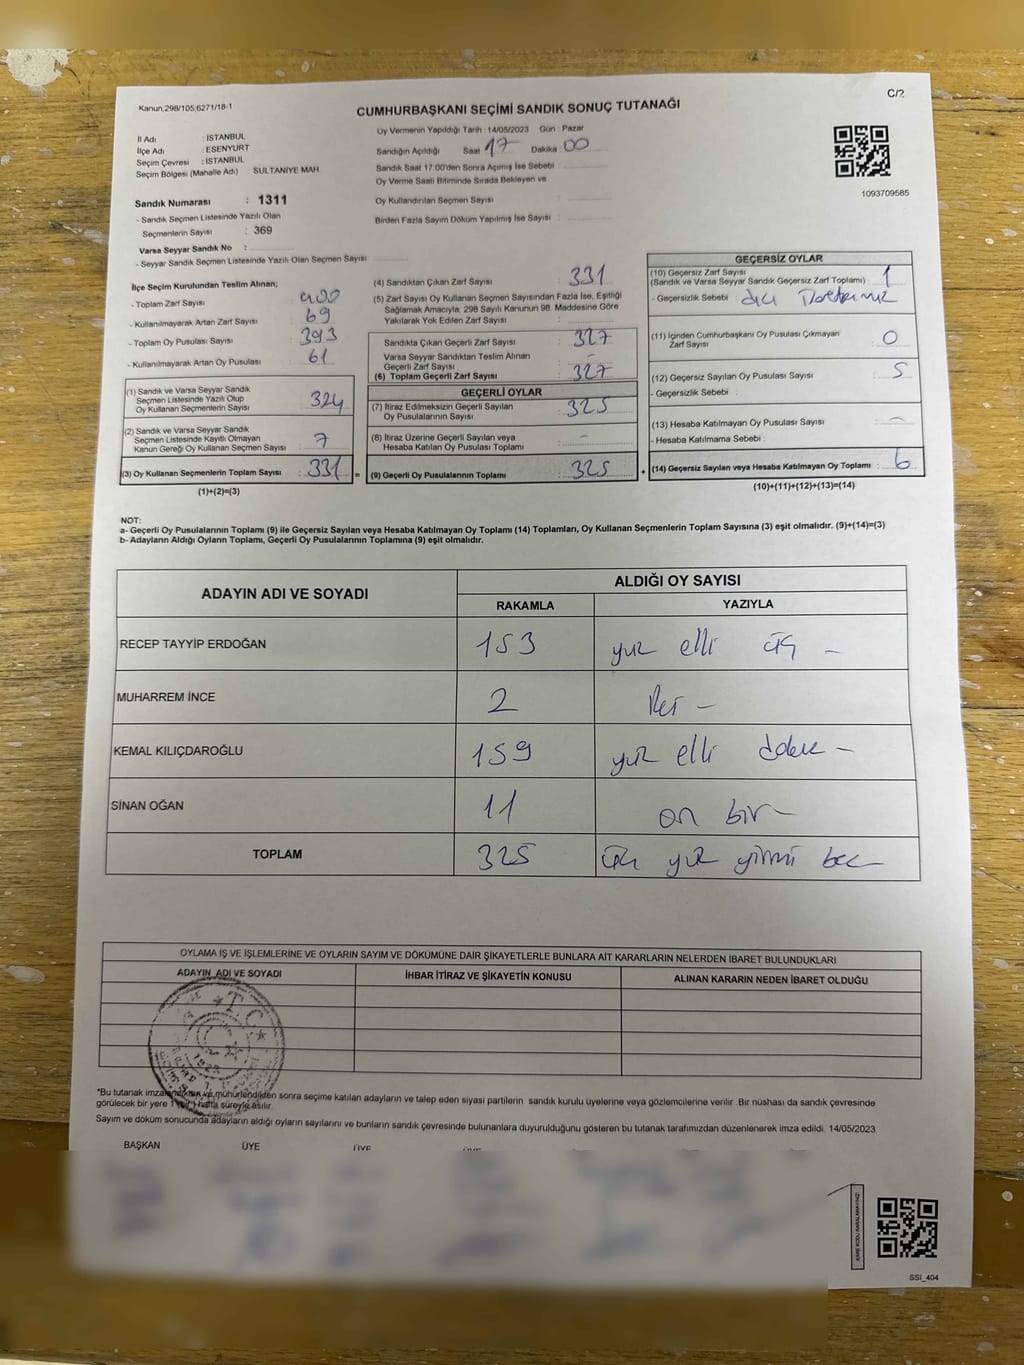 Kanun,298/105,6271/18-1
C/2
CUMHURBAŞKANI SEÇİMİ SANDIK SONUÇ TUTANAĞI
İl Adı : İSTANBUL
İlçe Adı : ESENYURT
Seçim Çevresi : İSTANBUL
Seçim Bölgesi (Mahalle Adı) : SULTANİYE MAH
Oy Vermenin Yapıldığı Tarih :14/05/2023 Gün : Pazar
Sandığın Açıldığı Saat 17 Dakika : 00
Sandık Saat 17.00'den Sonra Açımış İse Sebebi :
Oy Verme Saati Bitiminde Sırada Bekleyen ve
Oy Kullandırılan Seçmen Sayısı :
Birden Fazla Sayım Döküm Yapılmış İse Sayısı :
1093709585
Sandık Numarası : 1311
- Sandık Seçmen Listesinde Yazılı Olan
Seçmenlerin Sayısı : 369
Varsa Seyyar Sandık No :
- Seyyar Sandık Seçmen Listesinde Yazılı Olan Seçmen Sayısı
İlçe Seçim Kurulundan Teslim Alınan;
- Toplam Zarf Sayısı : 400
- Kullanılmayarak Artan Zarf Sayısı : 69
- Toplam Oy Pusulası Sayısı : 393
- Kullanılmayarak Artan Oy Pusulası : 61
(1) Sandık ve Varsa Seyyar Sandık
Seçmen Listesinde Yazılı Olup
Oy Kullanan Seçmenlerin Sayısı : 324
(2) Sandık ve Varsa Seyyar Sandık
Seçmen Listesinde Kayıtlı Olmayan
Kanun Gereği Oy Kullanan Seçmen Sayısı : 7
(3) Oy Kullanan Seçmenlerin Toplam Sayısı : 331 =
(1)+(2)=(3)
(4) Sandıktan Çıkan Zarf Sayısı : 331
(5) Zarf Sayısı Oy Kullanan Seçmen Sayısından Fazla İse, Eşitliği
Sağlamak Amacıyla, 298 Sayılı Kanunun 98. Maddesine Göre
Yakılarak Yok Edilen Zarf Sayısı :
Sandıkta Çıkan Geçerli Zarf Sayısı : 327
Varsa Seyyar Sandıktan Teslim Alınan
Geçerli Zarf Sayısı : -
(6) Toplam Geçerli Zarf Sayısı : 327
GEÇERLİ OYLAR
(7) İtiraz Edilmeksizin Geçerli Sayılan
Oy Pusulalarının Sayısı : 325
(8) İtiraz Üzerine Geçerli Sayılan veya
Hesaba Katılan Oy Pusulası Toplamı : -
(9) Geçerli Oy Pusulalarının Toplamı : 325 +
GEÇERSİZ OYLAR
(10) Geçersiz Zarf Sayısı
(Sandık ve Varsa Seyyar Sandık Geçersiz Zarf Toplamı) : 1
- Geçersizlik Sebebi :
(11) İçinden Cumhurbaşkanı Oy Pusulası Çıkmayan
Zarf Sayısı : 0
(12) Geçersiz Sayılan Oy Pusulası Sayısı : 5
- Geçersizlik Sebebi :
(13) Hesaba Katılmayan Oy Pusulası Sayısı : -
- Hesaba Katılmama Sebebi :
(14) Geçersiz Sayılan veya Hesaba Katılmayan Oy Toplamı : 6
(10)+(11)+(12)+(13)=(14)
NOT:
a- Geçerli Oy Pusulalarının Toplamı (9) ile Geçersiz Sayılan veya Hesaba Katılmayan Oy Toplamı (14) Toplamları, Oy Kullanan Seçmenlerin Toplam Sayısına (3) eşit olmalıdır. (9)+(14)=(3)
b- Adayların Aldığı Oyların Toplamı, Geçerli Oy Pusulalarının Toplamına (9) eşit olmalıdır.
ADAYIN ADI VE SOYADI
ALDIĞI OY SAYISI
RAKAMLA YAZIYLA
RECEP TAYYİP ERDOĞAN 153 yüz elli üç -
MUHARREM İNCE 2 iki -
KEMAL KILIÇDAROĞLU 159 yüz elli dokuz -
SİNAN OĞAN 11 on bir -
TOPLAM 325 üç yüz yirmi beş
OYLAMA İŞ VE İŞLEMLERİNE VE OYLARIN SAYIM VE DÖKÜMÜNE DAİR ŞİKAYETLERLE BUNLARA AİT KARARLARIN NELERDEN İBARET BULUNDUKLARI
ADAYIN ADI VE SOYADI İHBAR İTİRAZ VE ŞİKAYETİN KONUSU ALINAN KARARIN NEDEN İBARET OLDUĞU
T.C.
*Bu tutanak imzalandıktan ve mühürlendikten sonra seçime katılan adayların ve talep eden siyasi partilerin sandık kurulu üyelerine veya gözlemcilerine verilir .Bir nüshası da sandık çevresinde
görülecek bir yere 1 (bir) hafta süreyle asılır.
Sayım ve döküm sonucunda adayların aldığı oyların sayılarını ve bunların sandık çevresinde bulunanlara duyurulduğunu gösteren bu tutanak tarafımızdan düzenlenerek imza edildi. 14/05/2023
BAŞKAN ÜYE ÜYE ÜYE
SSI_404